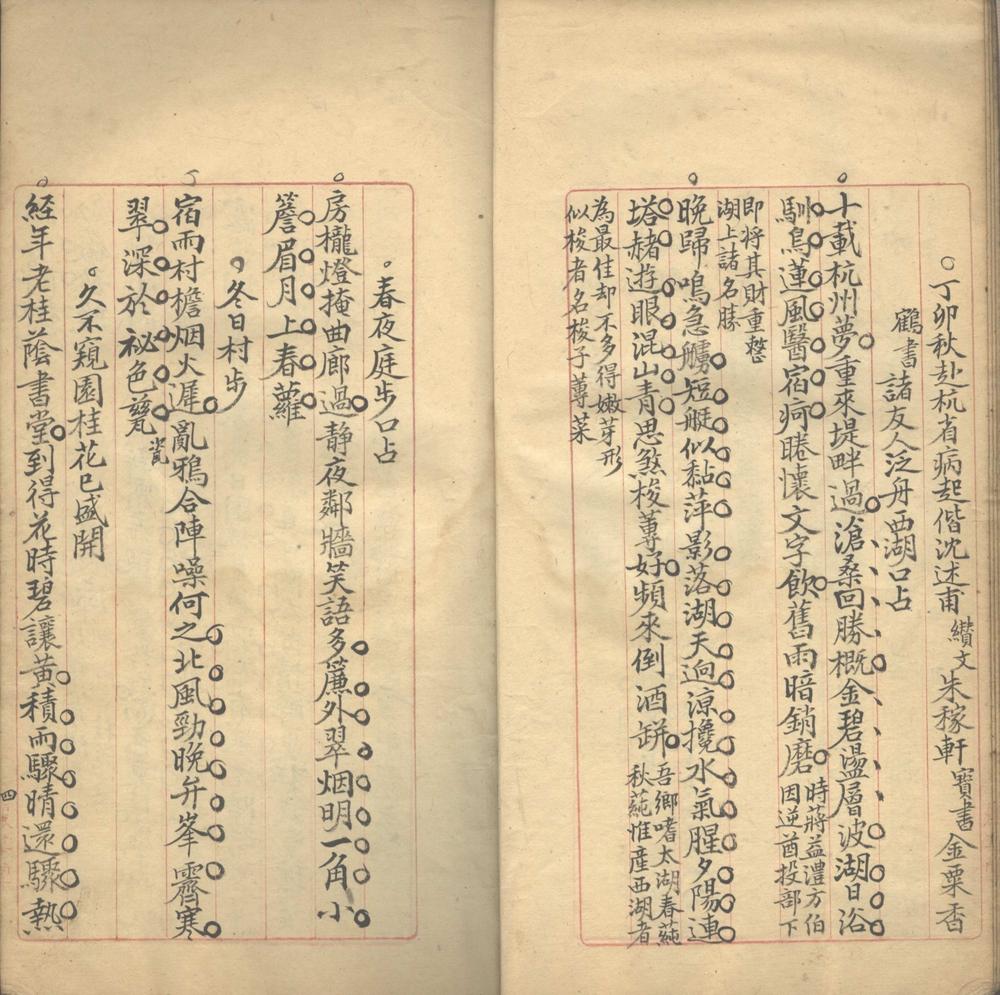 丁卯秋赴杭省病起偕沈述甫纘文朱稼軒寶書金粟香
鶴書諸友人泛舟西湖口占
十載杭州夢重來堤畔過滄桑回勝概金碧盪層波湖日浴
馴鳥蓮風醫宿疴睠懷文字飲舊雨暗銷磨時蔣益澧方伯
因逆酋投部下
即將其財重整
湖上諸名勝
晚歸鳴急艣短艇似黏萍影落湖天逈涼攙水氣腥夕陽連
塔赭遊眼混山青思煞梭蓴好頻來倒酒缾吾鄉嗜太湖春蒓
秋蒓惟產西湖者
為最佳却不多得嫩芽形
似梭者名梭子蓴菜
春夜庭步口占
房櫳燈掩曲廊過靜夜鄰牆笑語多簾外翠烟明一角小
簷眉月上春蘿
冬日村步
宿雨村檐烟火遲亂鴉合陣噪何之北風勁晚弁峯霽寒
翠深於祕色甆瓷
久不窺園桂花已盛開
經年老桂蔭書堂到得花時碧讓黃積雨驟晴還驟熱
四